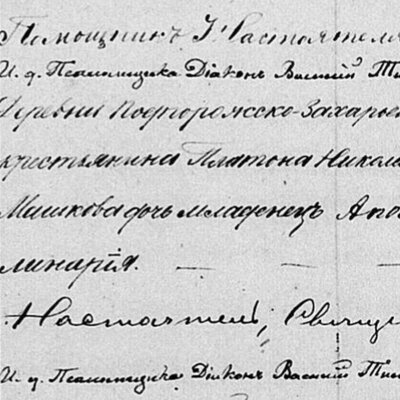 Помощникъ Настоятеля
И. д. Псаломщика Діаконъ Василій
Деревни Подпорожско-Захарье
крестьянина Платона Никола
Машкова дочь младенецъ Апол
линарія. — — —
Настоятель, Свяще
И. д. Псаломщика Діаконъ Василій